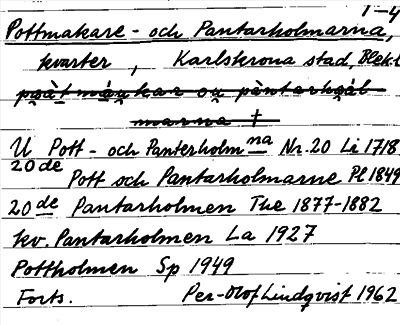 1-4
Pottmakare- och Pantarholmarna,
kvarter, Karlskrona stad, Blek.l
marna †
U Pott- och Panterholmna Nr. 20 Li 1718
20de Pott och Pantarholmarne Pl 1849
20de Pantarholmen The 1877-1882
kv. Pantarholmen La 1927
Pottholmen Sp 1949
Forts. Per-Olof Lindqvist 1962